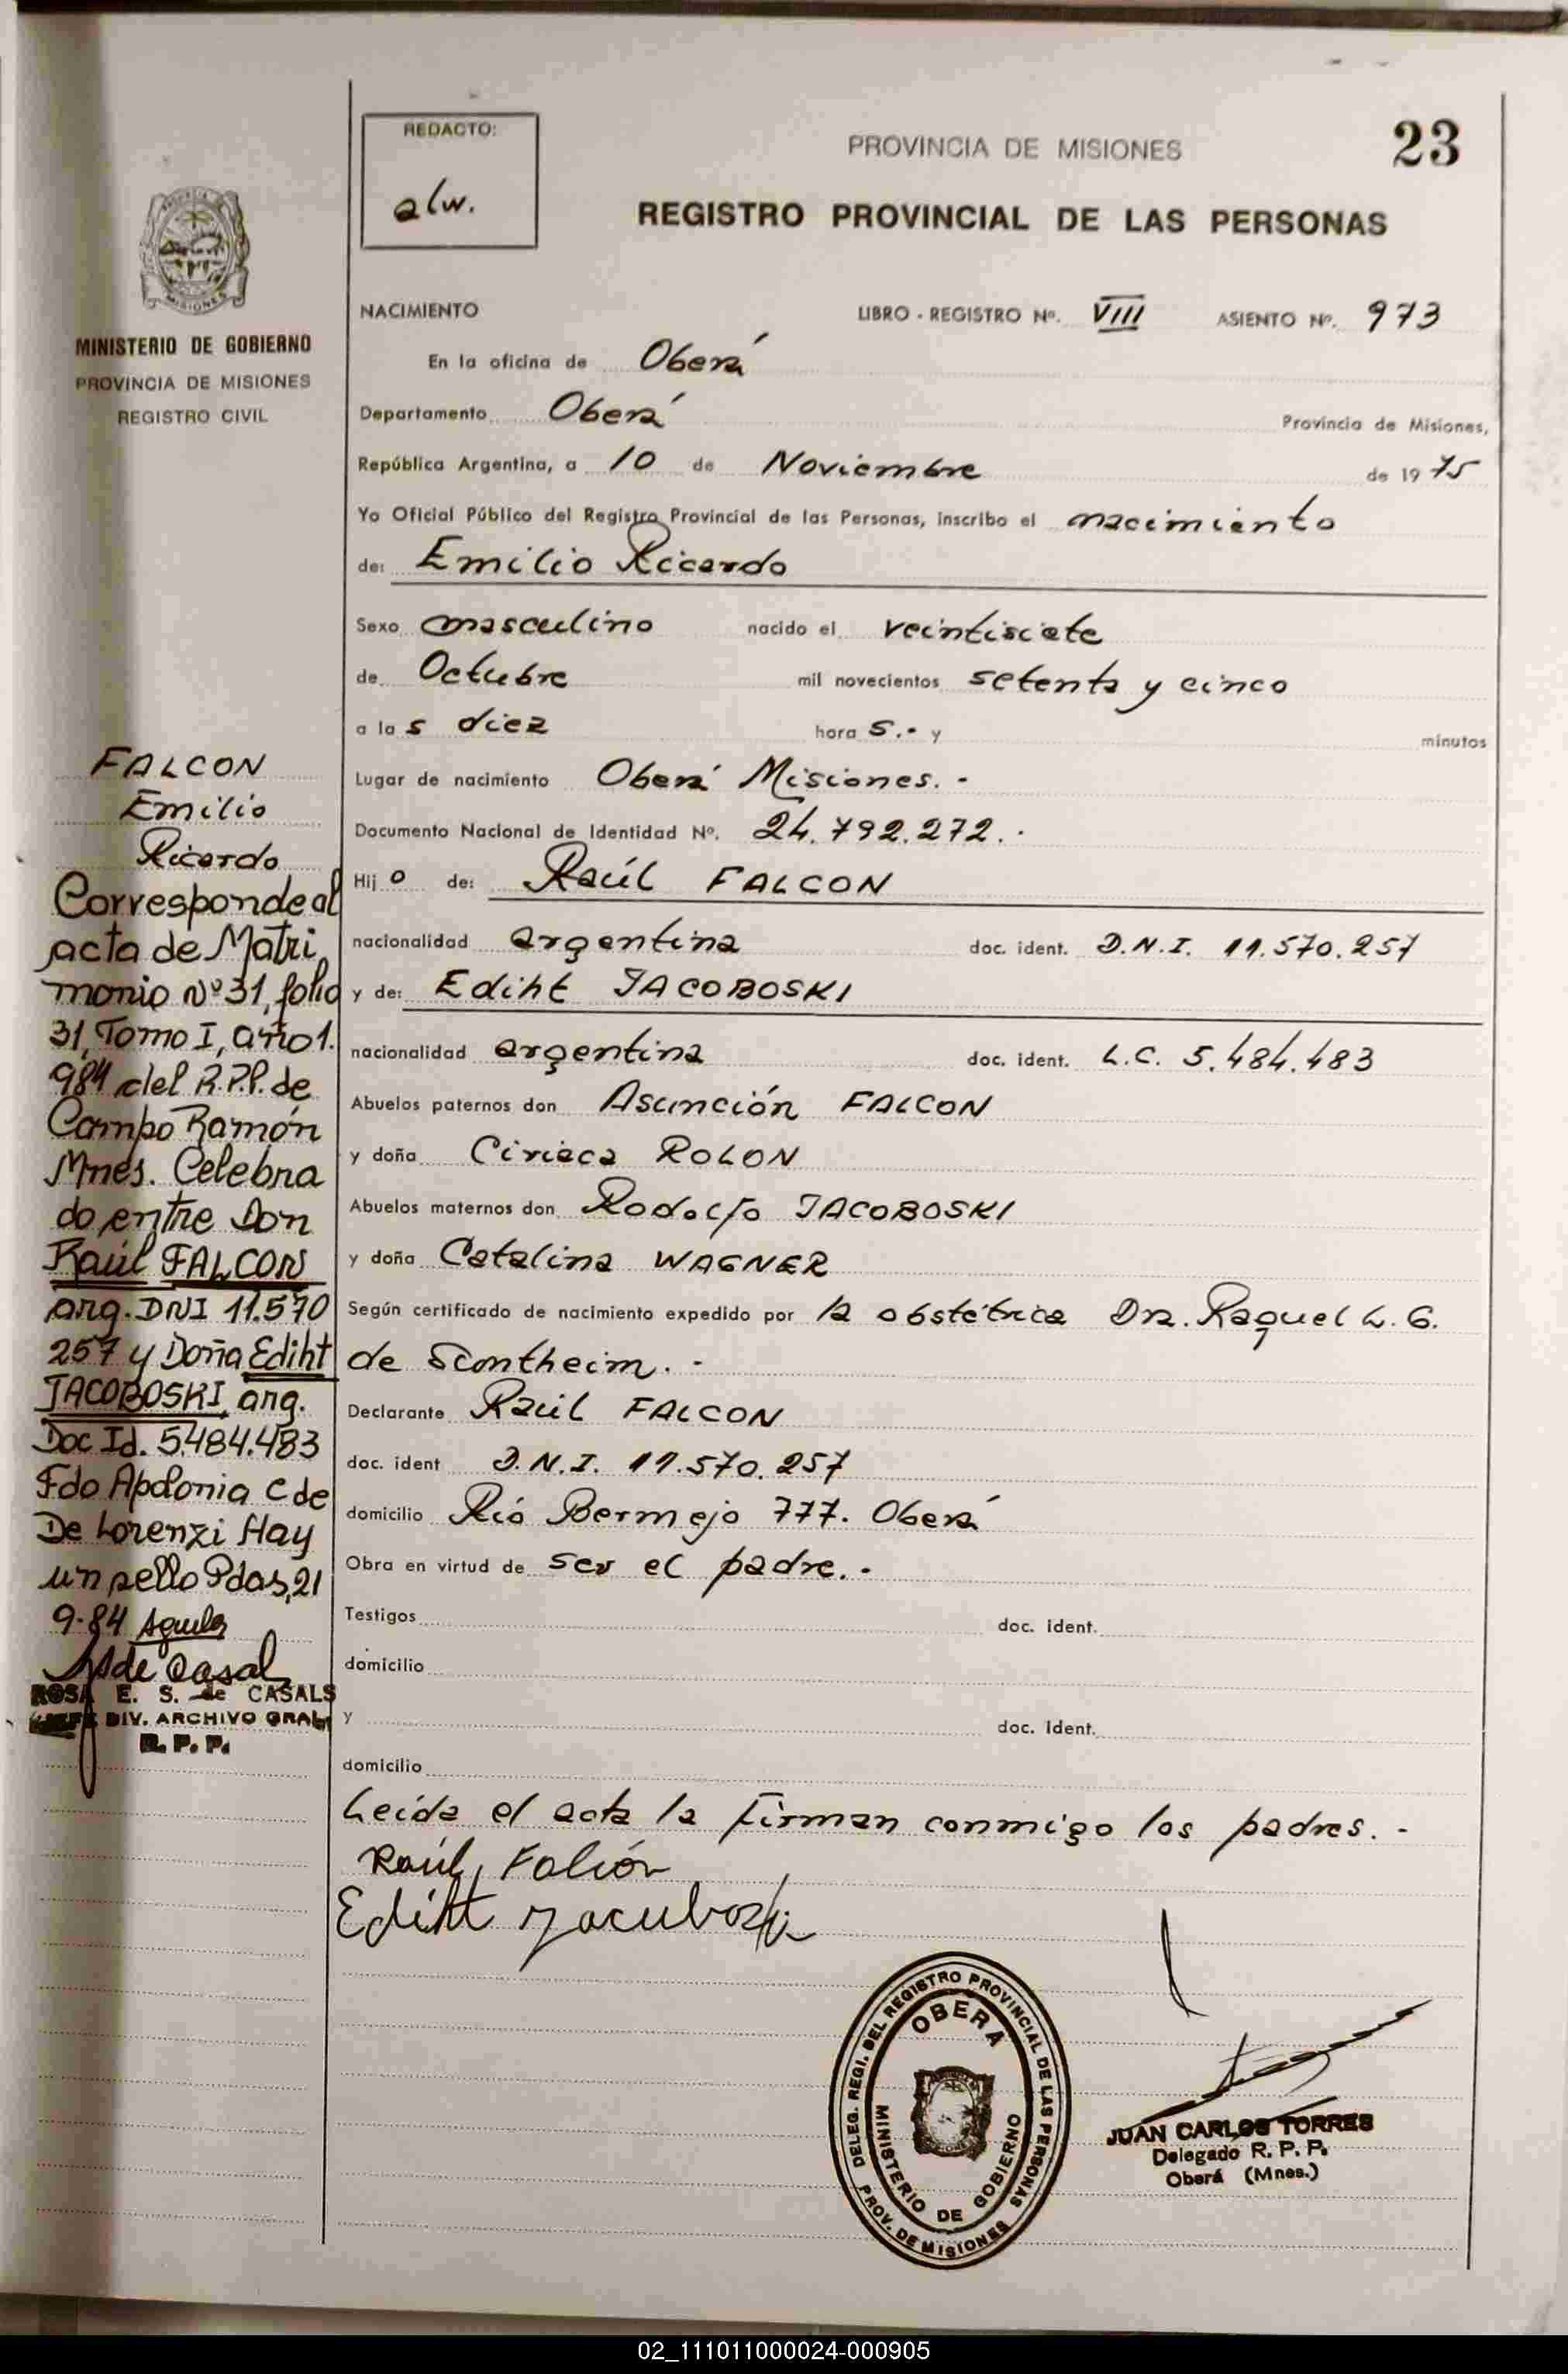 REDACTO:
alw.
PROVINCIA DE MISIONES
23
REGISTRO PROVINCIAL DE LAS PERSONAS
MISIONES
MINISTERIO DE GOBIERNO
PROVINCIA DE MISIONES
REGISTRO CIVIL
NACIMIENTO LIBRO - REGISTRO Nº. VIII ASIENTO Nº. 973
En la oficina de Oberá
Departamento Oberá Provincia de Misiones,
República Argentina, a 10 de Noviembre de 1975
Yo Oficial Público del Registro Provincial de las Personas, inscribo el nacimiento
de: Emilio Ricardo
Sexo masculino nacido el veintisiete
de Octubre mil novecientos setenta y cinco
a las diez hora s.- y minutos
Lugar de nacimiento Oberá Misiones.-
Documento Nacional de Identidad Nº. 24.792.272.-
Hijo de: Raúl FALCON
nacionalidad argentina doc. ident. D.N.I. 11.570.257
y de: Ediht JACOBOSKI
nacionalidad argentina doc. ident. L.C. 5.484.483
Abuelos paternos don Asunción FALCON
y doña Ciriaca ROLON
Abuelos maternos don Rodolfo JACOBOSKI
y doña Catalina WAGNER
Según certificado de nacimiento expedido por la obstétrica Dra. Raquel L. G.
de Scontheim.-
Declarante Raúl FALCON
doc. ident D.N.I. 11.570.257
domicilio Rió Bermejo 777. Oberá
Obra en virtud de ser el padre.-
Testigos doc. ident.
domicilio
y doc. ident.
domicilio
Leída el acta la firman conmigo los padres.-
Raúl Falcón
Ediht Jacuboski
FALCON
Emilio
Ricardo
Corresponde al
acta de Matri
monio Nº 31, folio
31, Tomo I, año 1.
984 del R.P.P. de
Campo Ramón
Mnes. Celebra
do entre Don
Raúl FALCON
arg. DNI 11.570
257 y Doña Ediht
JACOBOSKI, arg.
Doc Id. 5.484.483
Fdo Apolonia C de
De Lorenzi Hay
un sello Pdas, 21
9-84 Aguila
de Casal
ROSA E. S. de CASALS
DIV. ARCHIVO GRAL.
R. P. P.
DELEG. REGI. DEL REGISTRO PROVINCIAL DE LAS PERSONAS
PROV. DE MISIONES
OBERA
MINISTERIO DE GOBIERNO
JUAN CARLOS TORRES
Delegado R. P. P.
Oberá (Mnes.)
02_111011000024-000905